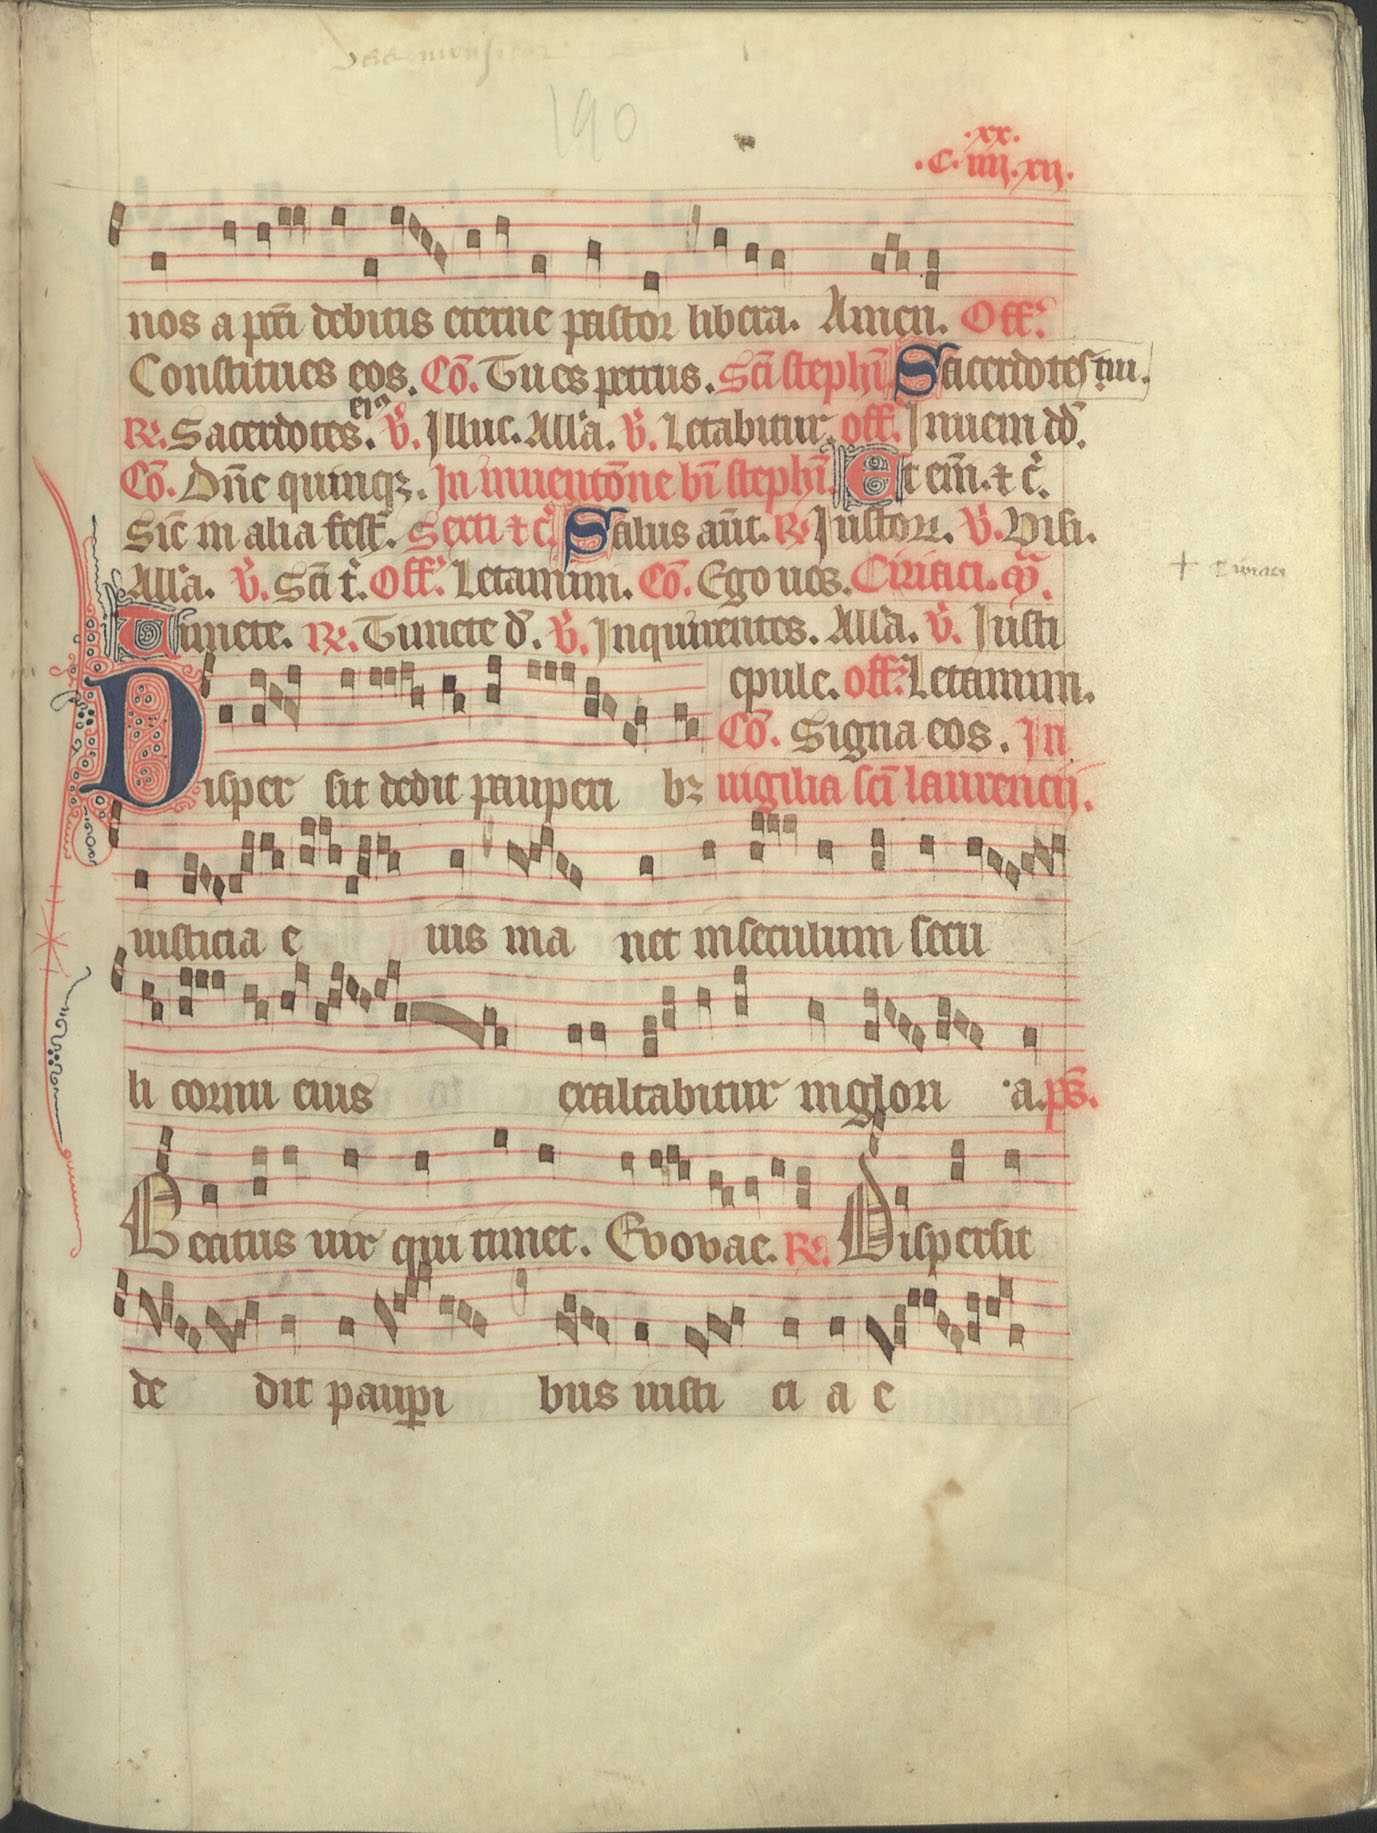 190
.xx.
.C.iiij.xij.
nos a pcti debitis eterne pastor libera. Amen. Off.
Constitues eos. Co. Tu es petrus. Sci stephi Sacerdotes tui.
eiꝰ
R. Sacerdotes. V. Illuc. Alla. V. Letabitur. off. Inueni dd.
Co. Dne quinqꝫ. In inuentone bi stephi. Et eni. ⁊ c.
Sic in alia fest. Sexti ⁊ c. Salus aut. R. Iustoꝝ. V. Visi.
Alla. V. Sci t. Off. Letamini. Co. Ego uos. Ciriaci. m.
Timete. R. Timete d. V. Inquirentes. Alla. V. Iusti
epule. off. Letamini.
Co. Signa eos. In
Disper sit dedit pauperi bꝫ uigilia sci laurencij.
iusticia e ius ma net inseculum secu
li cornu eius exaltabitur inglori a. ps.
Beatus uir qui timet. Evovae. R. Dispersit
de dit paupi bus iusti ci a e
+ Ciriaci